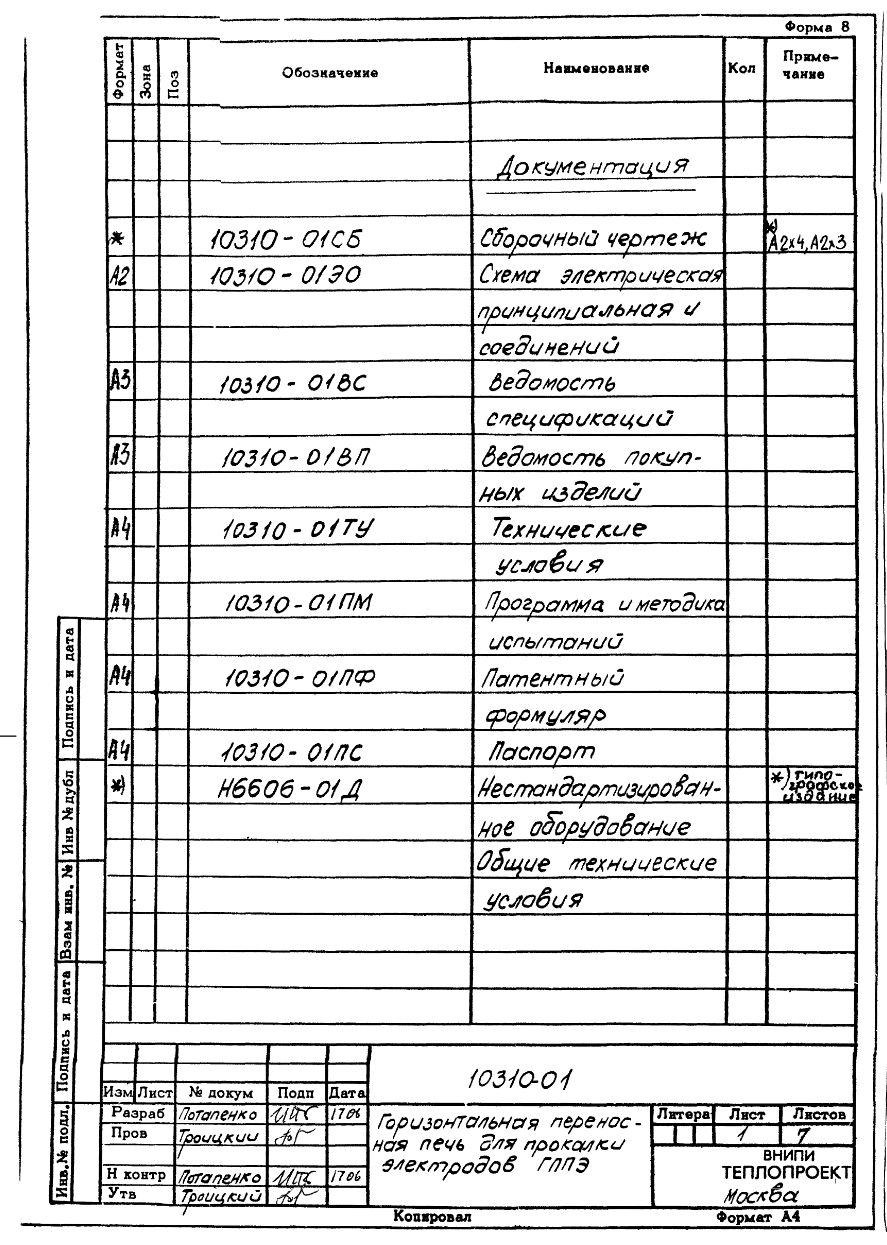 Форма 8
Формат Зона Поз Обозначение Наименование Кол Приме-
чание
Документация
* 10310-01СБ Сборочный чертеж *)
А2х4, А2х3
А2 10310-01ЭО Схема электрическая
принципиальная и
соединений
А3 10310-01ВС Ведомость
спецификаций
А3 10310-01ВП Ведомость покуп-
ных изделий
А4 10310-01ТУ Технические
условия
А4 10310-01ПМ Программа и методика
испытаний
А4 10310-01ПФ Патентный
формуляр
А4 10310-01ПС Паспорт
*) Н6606-01Д Нестандартизирован- *) типо-
графское
издание
ное оборудование
Общие технические
условия
Подпись и дата
Инв № дубл
Взам инв. №
Подпись и дата
Инв. № подл.
10310-01
Изм Лист № докум Подп Дата
Разраб Потапенко 17.06
Пров Троицкий
Н контр Потапенко 17.06
Утв Троицкий
Горизонтальная перенос-
ная печь для прокалки
электродов ГППЭ
Литера Лист Листов
1 7
ВНИПИ
ТЕПЛОПРОЕКТ
Москва
Копировал Формат А4